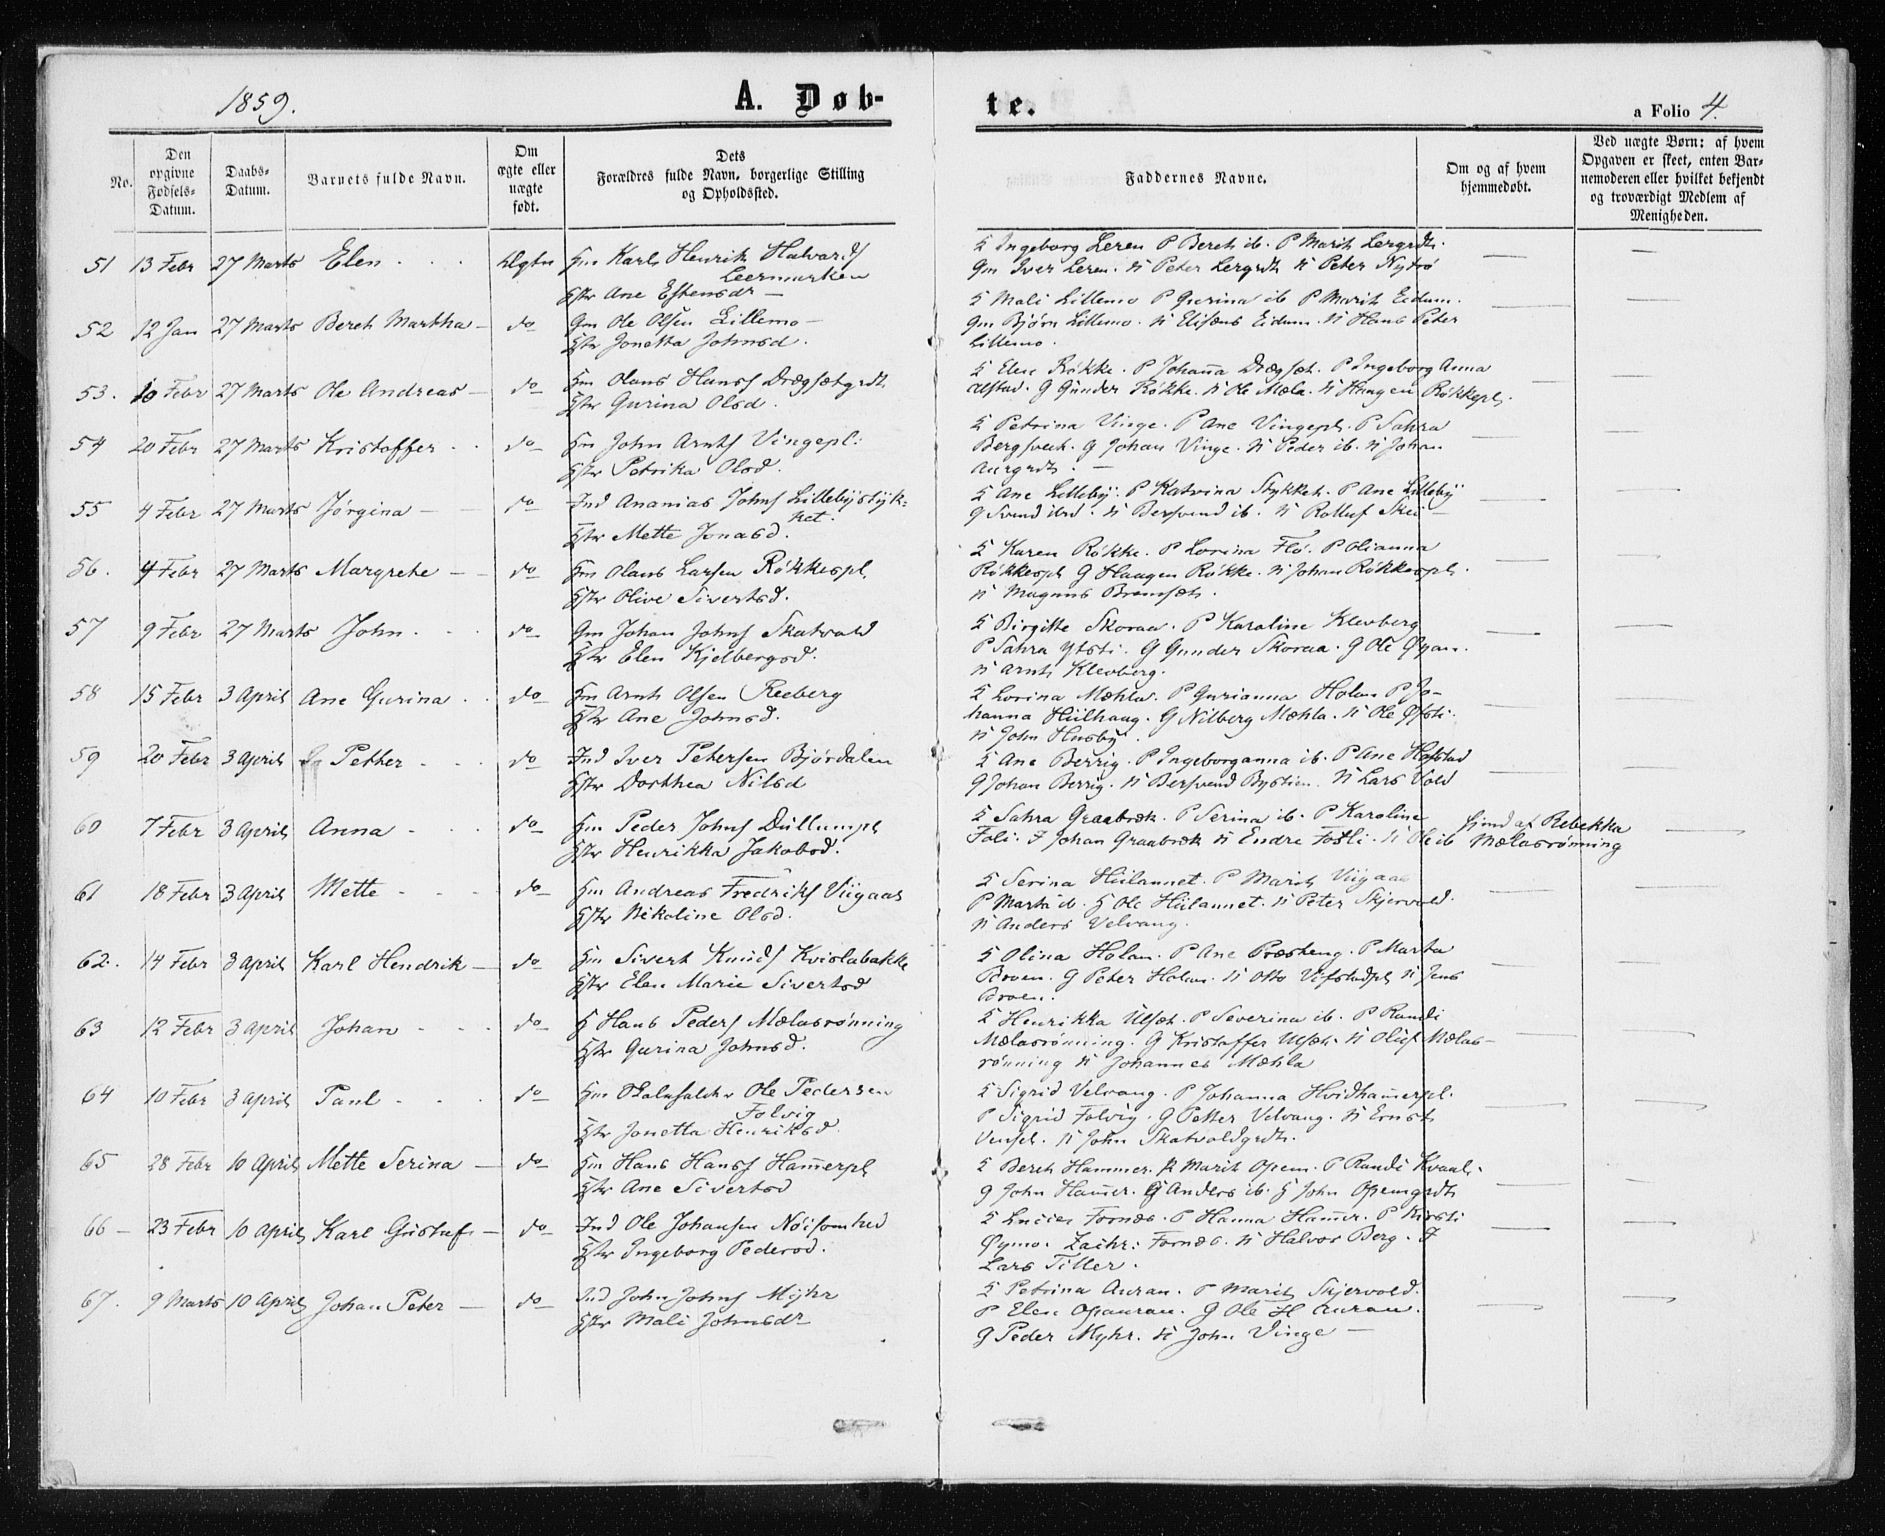 1859.
A. Døb-
te.
a Folio 4.
No.
Den opgivne Fødsels-Datum.
Daabs-Datum.
Barnets fulde Navn.
Om ægte eller uægte født.
Dets Forældres fulde Navn, borgerlige Stilling og Opholdssted.
Faddernes Navne.
Om og af hvem hjemmedøbt.
Ved uægte Børn: af hvem Opgaven er skeet, enten Barnemoderen eller hvilket bekjendt og troværdigt Medlem af Menigheden.
51 13 Febr 27 Marts Elen Ægte Hm Karl Henrik Halvards Leermarken
Hstr Ane Estensdr
K Ingeborg Leren P Bereth ib. P Marith Lergrdt.
Gm Iver Leren. N Peter Lergrdt N Peter Nytrø
52 12 Jan 27 Marts Bereth Martha do Gm Ole Olsen Lillemo
Hstr Jonetta Johnsd.
K Mali Lillemo P Gurina ib P Marith Eidum.
Gm Bjørn Lillemo. N Elisæus Eidum. N Hans Peter
Lillemo.
53. 10 Febr 27 Marts Ole Andreas do Hm Olaus Hans Drægsætgrdt
Hstr Gurina Olsd.
K Elen Røkke. P Johanna Drægset. P Ingeborg Anna
Alstad. G Gunder Røkke. N Ole Mæla. N Haagen Røkkepl.
54 20 Febr 27 Marts Kristoffer do Hm John Arnts Vingepl.
Hstr Petrika Olsd.
K Petrina Vinge. P Ane Vingepl. P Sahra
Bergsveet. G Johan Vinge. N Peder ib. N Johan
55 4 Febr 27 Marts Jørgina do Ind Ananias Johns Lillebystyk-
ket.
Hstr Mette Jonasd.
K Ane Lilleby. P Katrina Stykket. P Ane Lilleby
G Svend ibd. N Bersvend ib. N Rolluf Skei
56. 4 Febr 27 Marts Margrethe do Hm Olaus Larsen Røkkespl.
Hstr Olive Sivertsd.
K Karen Røkke. P Lorina Flø. P Olianna
Røkkespl G Haagen Røkke. N Johan Røkkespl.
N Magnus Bremset.
57 9 Febr 27 Marts John do Gm Johan Johns Skatvold
Hstr Elen Kjelbergsd.
K Birgitte Skoraa. P Karoline Klevberg
P Sahra Ytsti. G Gunder Skoraa. G Ole Øyan.
N Arnt Klevberg.
58 15 Febr 3 April Ane Gurina do Hm Arnt Olsen Reeberg
Hstr Ane Johnsd.
K Lorina Mæhla. P Gurianna Holan P Jo-
hanna Hülhaug. G Nilberg Mæhla. N Ole Øfsti.
N John Husby.
59 20 Febr 3 April Petter do Ind Iver Petersen Bjørdalen
Hstr Dorthea Nilsd
K Ane Berrig. P Ingeborganna ib. P Ane Hofstad
G Johan Berrig. N Bersvend Bystien. N Lars Vold
60 7 Febr 3 April Anna do Hm Peder Johns Dullumpl
Hstr Henrikka Jakobsd.
K Sahra Graabræk. P Serina ib. P Karoline
Foli. J Johan Graabræk N Endre Fosli. N Ole ib
hjmd af Rebekka
Mælasrønning
61 18 Febr 3 April Mette do Hm Andreas Fredriks Viigaas
Hstr Nikoline Olsd.
K Serina Hülannet. P Marith Viigaas
P Marta ib. G Ole Hülannet. N Peter Skjervold.
N Anders Velvang.
62. 14 Febr 3 April Karl Hendrik do Hm Sivert Knuds Kvislabakke
Hstr Elen Marie Sivertsd
K Olina Holan. P Ane Præsteng. P Marta
Broen. G Peter Holan. N Otto Vifstadpl N Jens
Broen.
63 12 Febr 3 April Johan do G Hans Peders Mælasrønning
Hstr Gurina Johnsd.
K Henrikka Ulset. P Severina ib. P Randi
Mælasrønning. G Kristoffer Ulset. N Oluf Mælas-
rønning N Johannes Mæhla
64 10 Febr 3 April Paul do Hm Ole Pedersen
Folvig
Hstr Jonetta Henriksd.
K Sigrid Velvang. P Johanna Hvidhammerpl.
P Sigrid Folvig. G Petter Velvang. N Ernst
N John Skatvoldgrdt.
65 28 Febr 10 April Mette Serina do Hm Hans Hans Hammerpl
Hstr Ane Sivertsd
K Bereth Hammer. P Marith Opem. P Randi Kvaal.
G John Hammer. G Anders ib. G John Opemgrdt
66 23 Febr 10 April Karl Gustaf do Ind Ole Johansen Nøisomhed
Hstr Ingeborg Pedersd.
K Lucie Fornes. P Hanna Hammer. P Kirsti
Øymo. Zachr: Fornæs. N Halvor Berg. J
Lars Tiller.
67. 9 Marts 10 April Johan Peter do Ind John Johns Myhr
Hstr Mali Johnsdr
K Petrina Auran. P Marith Skjervold.
P Elen Opauran. G Ole H Auran.
G Peder Myhr. N John Vinge